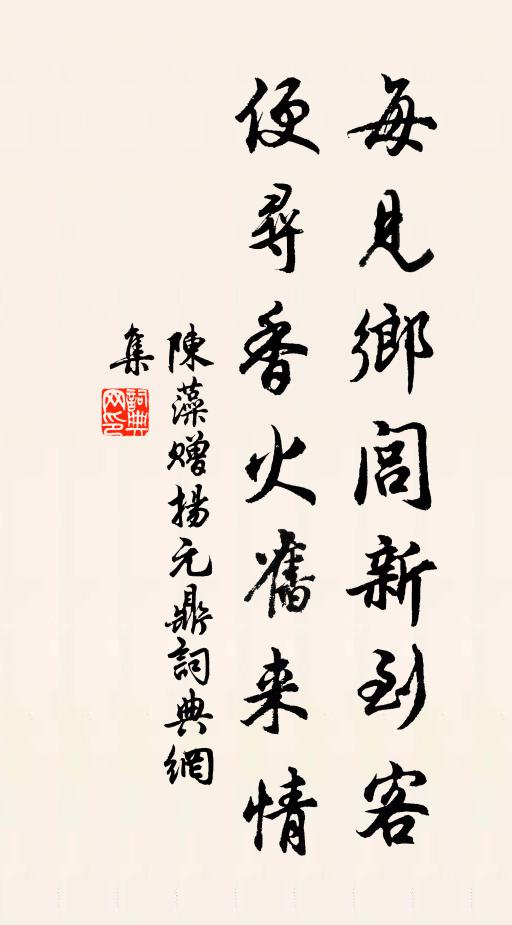 每見鄉閭新到客
便尋香火舊来情
陳藻贈揚元鼎詞典網
集
詞典网印